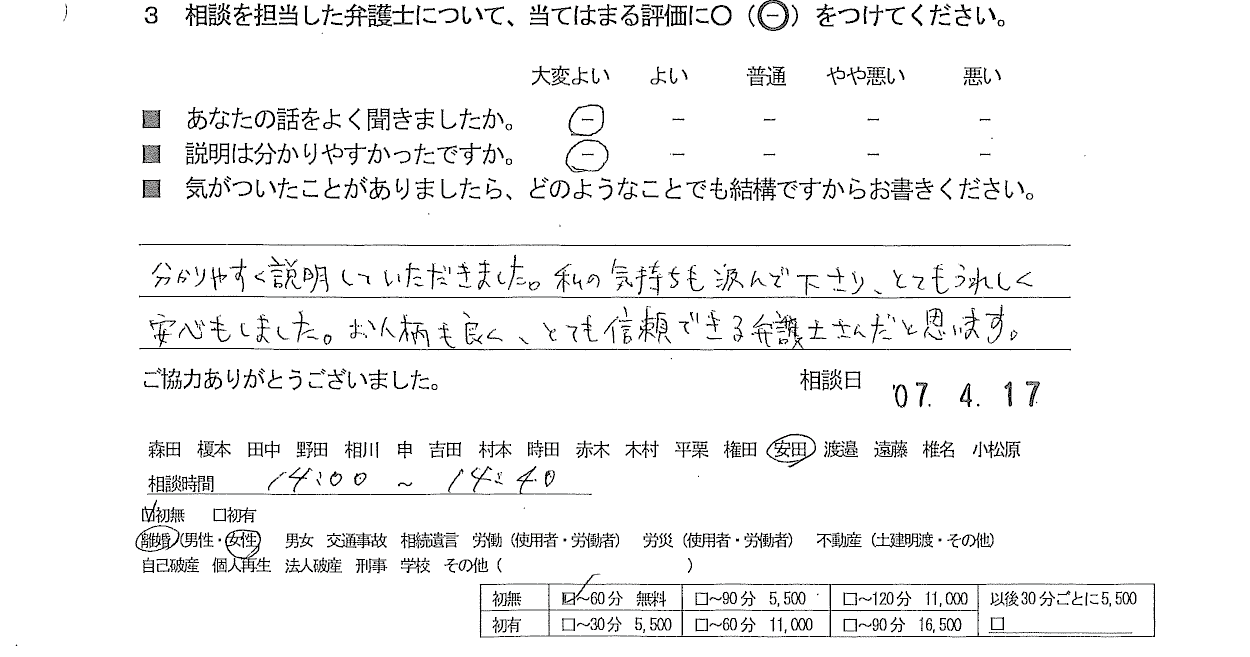 3 相談を担当した弁護士について、当てはまる評価に○（㊀）をつけてください。
大変よい よい 普通 やや悪い 悪い
■ あなたの話をよく聞きましたか。 － － － － －
■ 説明は分かりやすかったですか。 － － － － －
■ 気がついたことがありましたら、どのようなことでも結構ですからお書きください。
分かりやすく説明していただきました。私の気持ちも汲んで下さり、とてもうれしく
安心もしました。お人柄も良く、とても信頼できる弁護士さんだと思います。
ご協力ありがとうございました。 相談日 '07. 4. 17
森田 榎本 田中 野田 相川 申 吉田 村本 時田 赤木 木村 平栗 権田 安田 渡邉 遠藤 椎名 小松原
相談時間 14:00 ～ 14:40
☑初無 □初有
離婚（男性・女性） 男女 交通事故 相続遺言 労働（使用者・労働者） 労災（使用者・労働者） 不動産（土建明渡・その他）
自己破産 個人再生 法人破産 刑事 学校 その他（ ）
初無 ☑～60分 無料 □～90分 5,500 □～120分 11,000 以後30分ごとに5,500
初有 □～30分 5,500 □～60分 11,000 □～90分 16,500 □